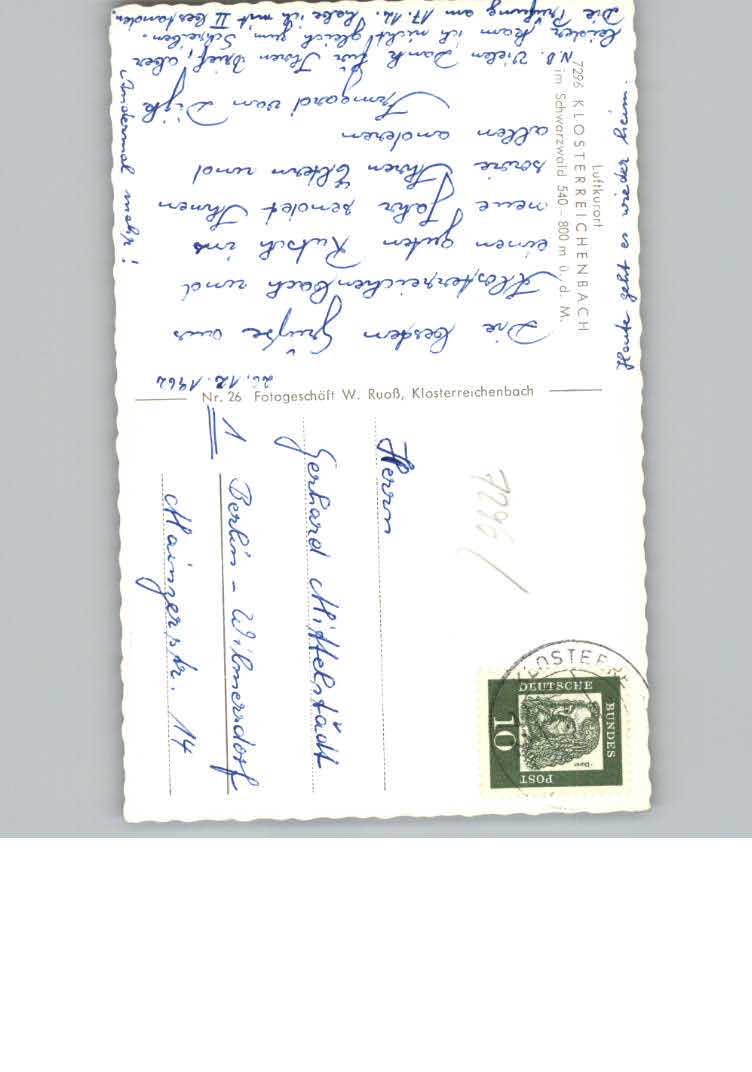 Luftkurort
7296 KLOSTERREICHENBACH
im Schwarzwald 540 – 800 m ü. d. M.
26.12.1962
Die besten Grüße aus
Klosterreichenbach und
einen guten Rutsch ins
neue Jahr sendet Ihnen
sowie Ihren Eltern und
allen anderen
Irmgard van Dijk
N.B. Vielen Dank für Ihren Brief, aber
leider kam ich nicht gleich zum Schreiben.
Die Prüfung am 17.12. habe ich mit II bestanden.
Andermal mehr!
Heute geht es wieder heim.
Nr. 26 Fotogeschäft W. Ruoß, Klosterreichenbach
7296/
Herrn
Gerhard Mittelstädt
1 Berlin - Wilmersdorf
Mainzerstr. 14
KLOSTERRE
DEUTSCHE
BUNDES
POST
10